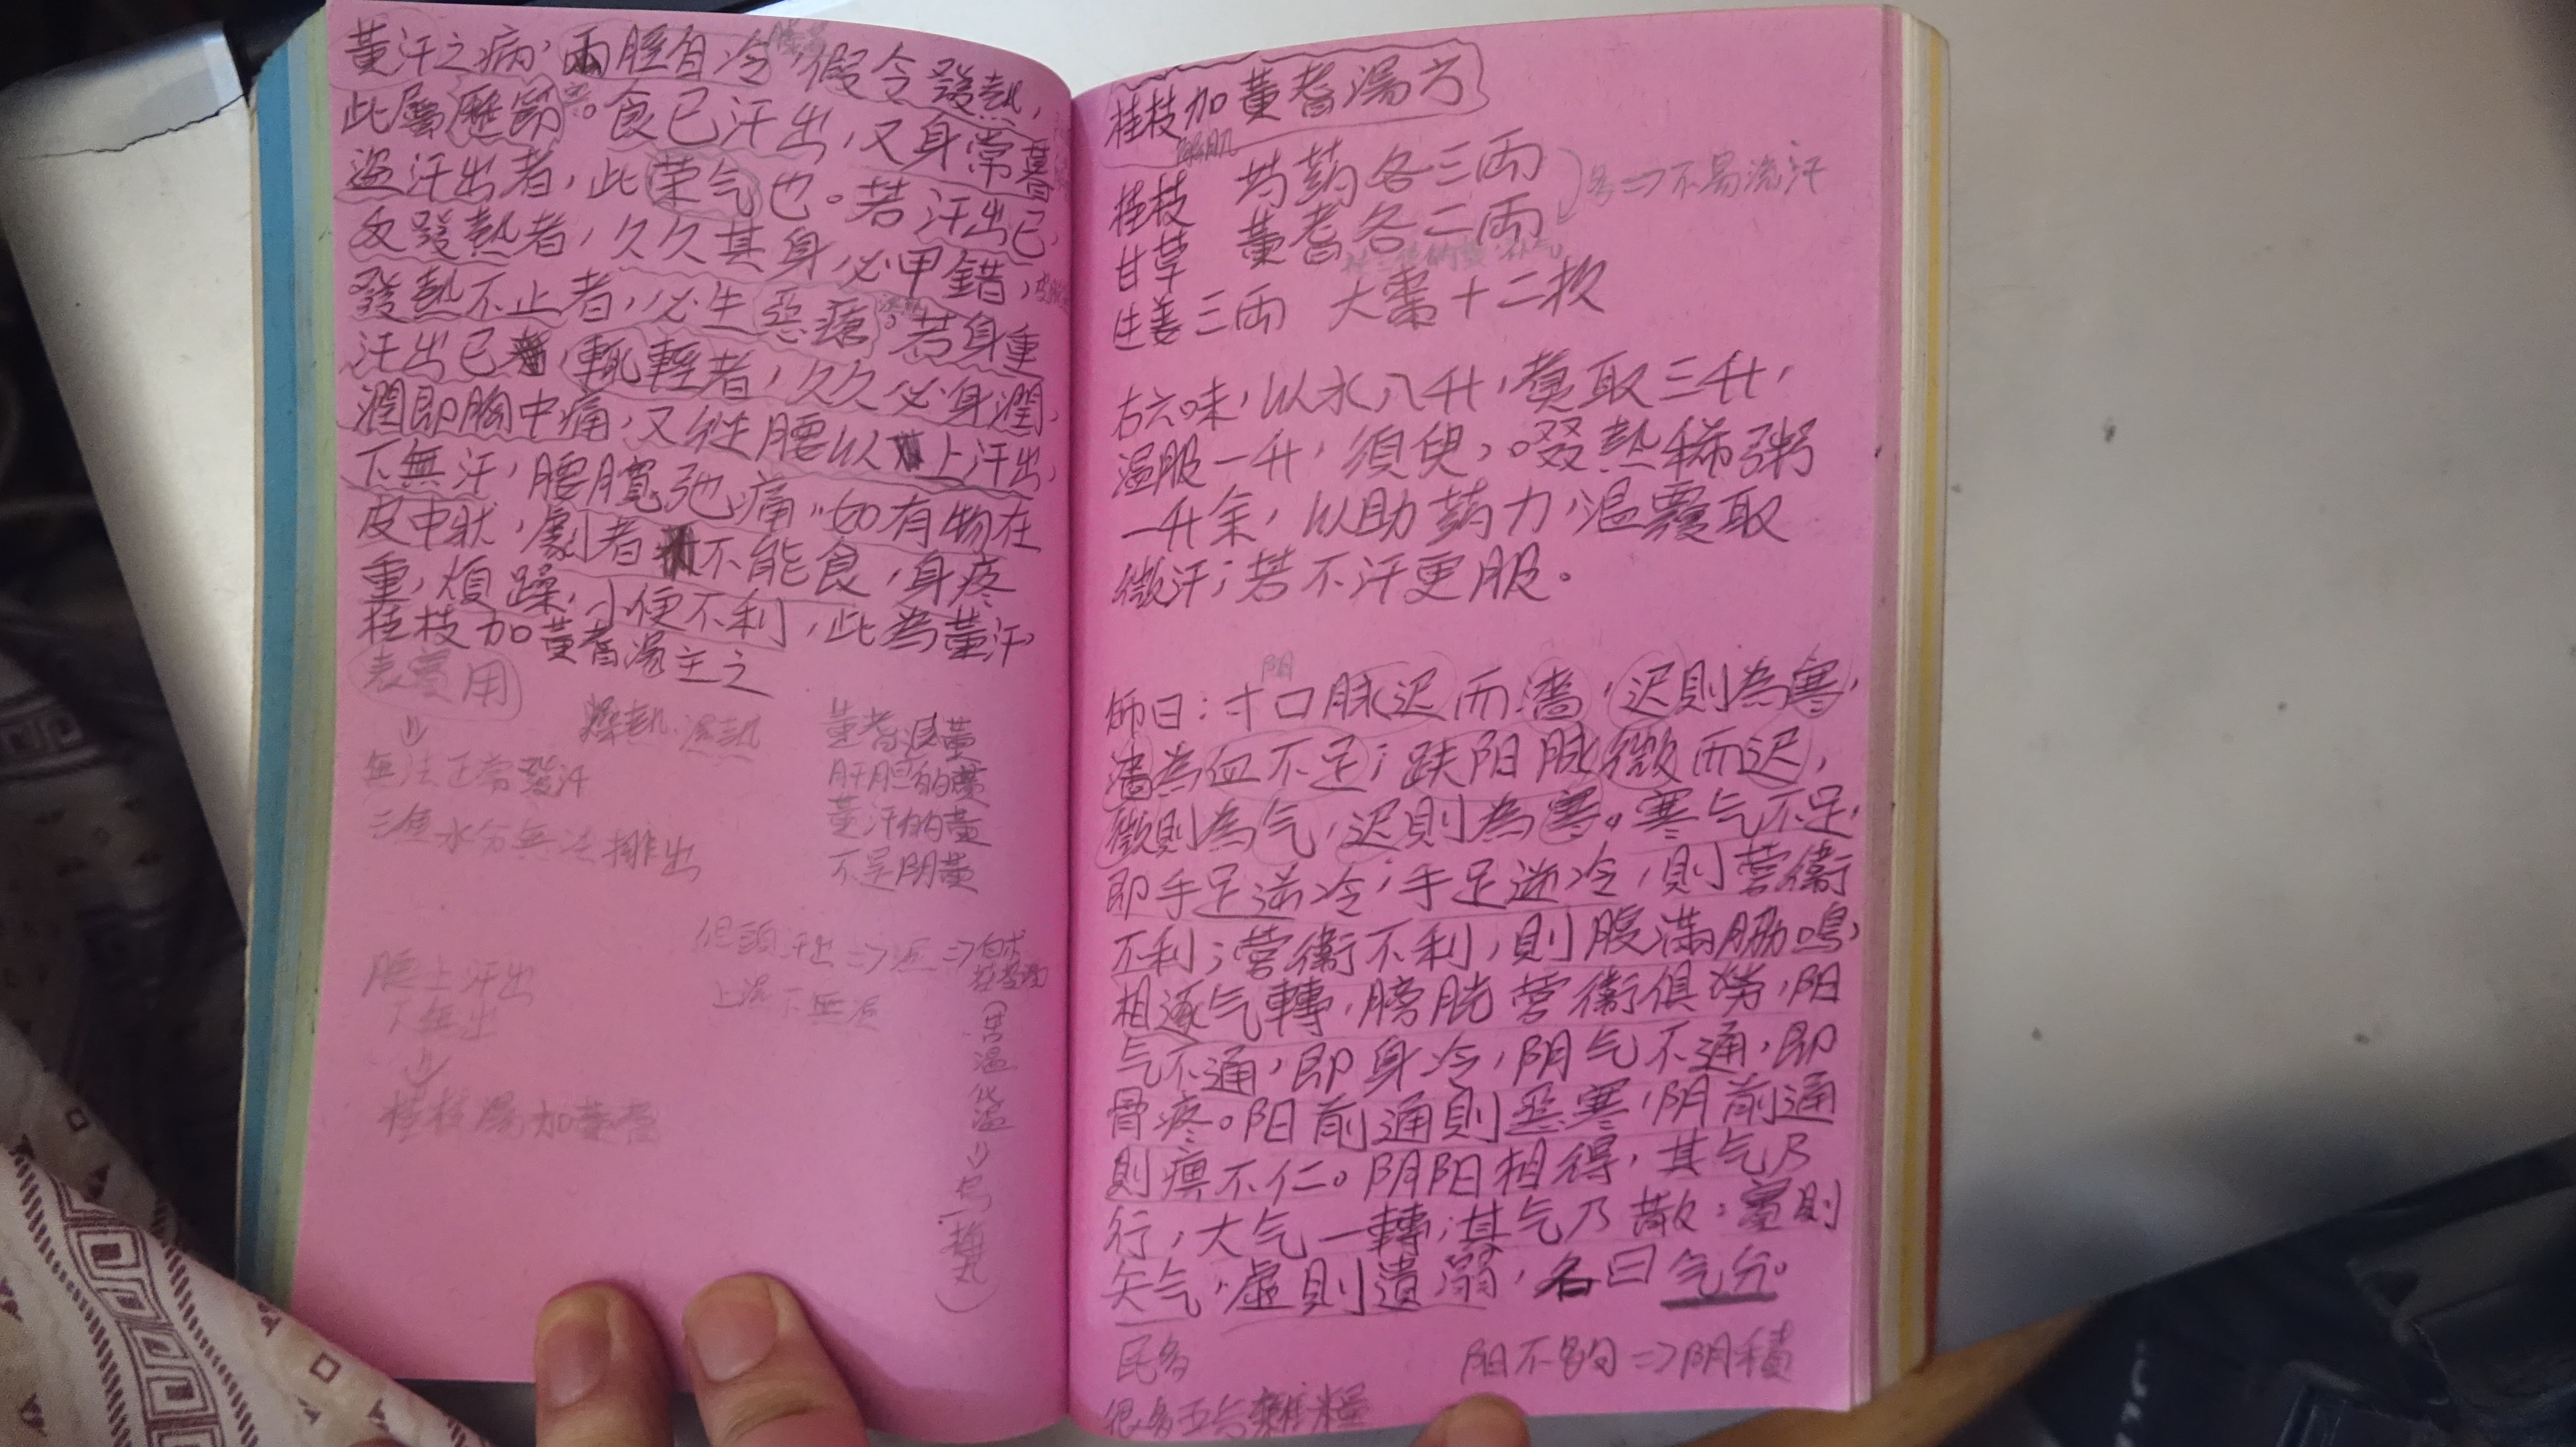 黃汗之病，兩脛自冷，假令發熱，
此屬歷節。食已汗出，又身常暮
盜汗出者，此荣气也。若汗出已，
反發熱者，久久其身必甲錯，
發熱不止者，必生惡瘡。若身重
汗出已，輒輕者，久久必身潤，
潤即胸中痛，又從腰以上汗出，
下無汗，腰髖弛痛，如有物在
皮中狀，劇者不能食，身疼
重，煩躁，小便不利，此為黃汗，
桂枝加黃耆湯主之
表虛用
燥熱 濕熱
無法正常發汗
三焦水分無法排出
黃耆退黃
肝胆的黃
黃汗的黃
不是阴黃
但頭汗出 => 濕 =>
上濕下無濕
腰上汗出
下無出
桂枝湯加黃耆
桂枝加黃耆湯方
解肌
桂枝 芍药各三兩
不易流汗
甘草 黃耆各二兩
生姜三兩 大棗十二枚
右六味，以水八升，煮取三升，
溫服一升，須臾，啜熱稀粥
一升余，以助药力，溫覆取
微汗；若不汗更服。
阳
師曰：寸口脉迟而濇，迟則為寒，
濇為血不足；趺阳脉微而迟，
微則為气，迟則為寒。寒气不足，
即手足逆冷；手足逆冷，則營衛
不利；營衛不利，則腹滿脇鳴，
相逐气轉，膀胱營衛俱勞，阳
气不通，即身冷，阴气不通，即
骨疼。阳前通則惡寒，阴前通
則痹不仁。阴阳相得，其气乃
行，大气一轉，其气乃散：實則
矢气，虛則遺溺，名曰气分。
阳不夠 => 阴積